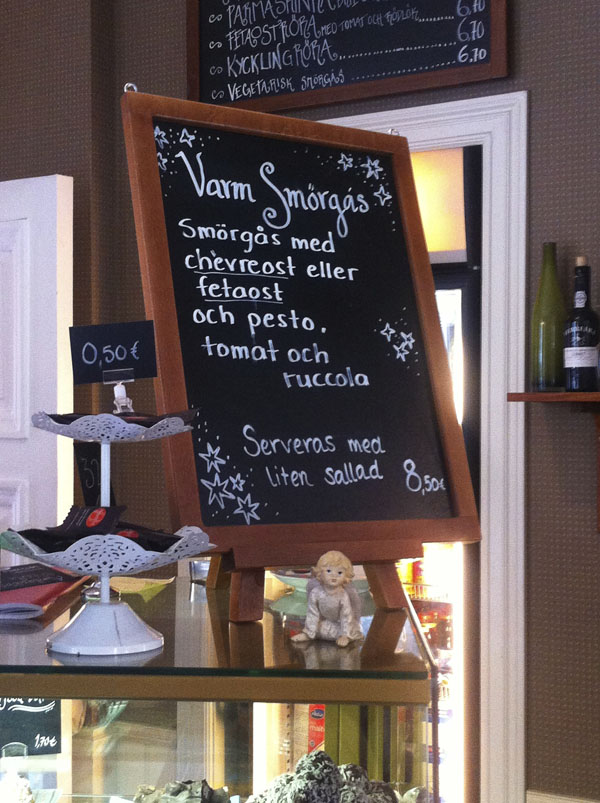 FETAOSTRÖRA MED TOMAT OCH RÖDLÖK 6,70
KYCKLINGRÖRA 6,70
VEGETARISK SMÖRGÅS
Varm Smörgås
Smörgås med
chèvreost eller
fetaost
och pesto,
tomat och
ruccola
Serveras med
liten sallad 8,50€
0,50€
1,70€